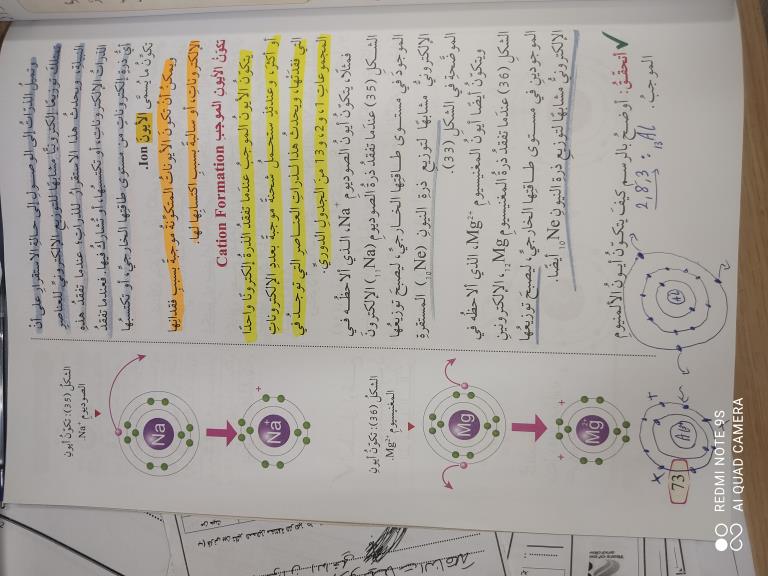 وتميلُ الذراتُ إلى الوصولِ إلى حالةِ الاستقرارِ على أنْ
تمتلكَ توزيعًا إلكترونيًّا مشابهًا للتوزيعِ الإلكترونيِّ للعناصرِ
النبيلةِ، ويحدثُ هذا الاستقرارُ للذراتِ؛ عندما تفقدُ هذهِ
الذراتُ الإلكتروناتِ، أو تكتسبُها، أو تُشاركُ فيها. فعندما تفقدُ
أيُّ ذرةٍ إلكتروناتٍ من مستوى طاقتِها الخارجيِّ، أو تكتسبُها
تكوّنُ ما يسمَّى الأيونَ Ion.
ويمكنُ أنْ تكونَ الأيوناتُ المتكوّنةُ موجبةً بسببِ فقدانِها
الإلكتروناتِ، أو سالبةً بسببِ اكتسابِها لها.
تكوّن الأيونِ الموجبِ Cation Formation
يتكوّنُ الأيونُ الموجبُ عندما تفقدُ الذرةُ إلكترونًا واحدًا
أو أكثرَ، وعندئذٍ ستحملُ شحنةً موجبةً بعددِ الإلكتروناتِ
التي فقدتْها، ويحدثُ هذا لذراتِ العناصرِ التي توجدُ في
المجموعاتِ 1، و2، و13 من الجدولِ الدوريِّ.
فمثلًا، يتكوّنُ أيونُ الصوديومِ Na+، الذي ألاحظُه في
الشكلِ (35) عندما تفقدُ ذرةُ الصوديومِ (11Na) الإلكترونَ
الموجودَ في مستوى طاقتِها الخارجيِّ، ليصبحَ توزيعُها
الإلكترونيُّ مشابهًا لتوزيعِ ذرةِ النيونِ (10Ne) المستقرةِ
الموضّحةِ في الشكلِ (33).
ويتكوّنُ أيضًا أيونُ المغنيسيومِ Mg2+، الذي ألاحظُه في
الشكلِ (36) عندما تفقدُ ذرةُ المغنيسيومِ 12Mg، الإلكترونينِ
الموجودينِ في مستوى طاقتِها الخارجيِّ، ليصبحَ توزيعُها
الإلكترونيُّ مشابهًا لتوزيعِ ذرةِ النيونِ 10Ne أيضًا.
أتحقّقُ: أوضحُ بالرسمِ كيفَ يتكوّنُ أيونُ الألمنيومِ
الموجبُ.
13Al : 2,8,3
Al
Al
Na
Na+
الشكلُ (35): تكوّنُ أيونِ
الصوديومِ Na+.
Mg
Mg2+
الشكلُ (36): تكوّنُ أيونِ
المغنيسيومِ Mg2+.
73
REDMI NOTE 9S
AI QUAD CAMERA